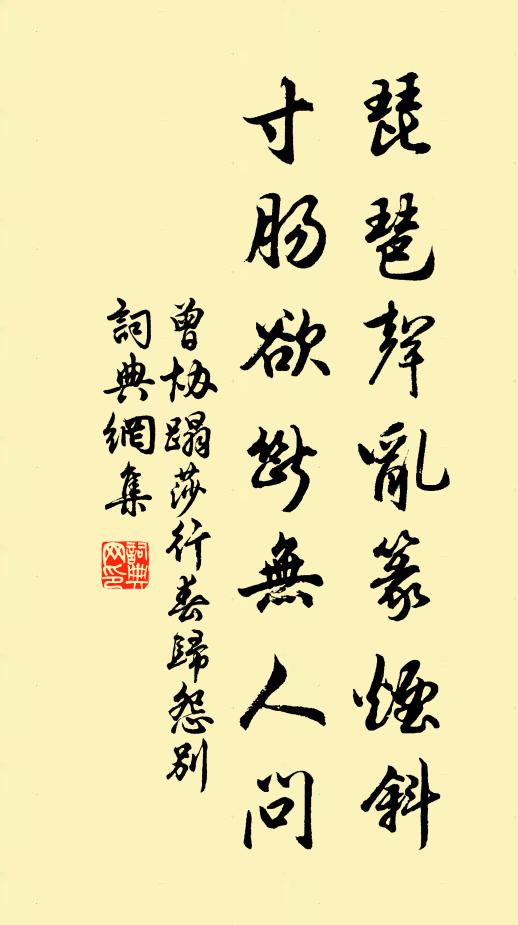 琵琶聲亂篆煙斜
寸腸欲斷無人問
曾協踢莎行春歸怨別
詞典網集
詞典網印